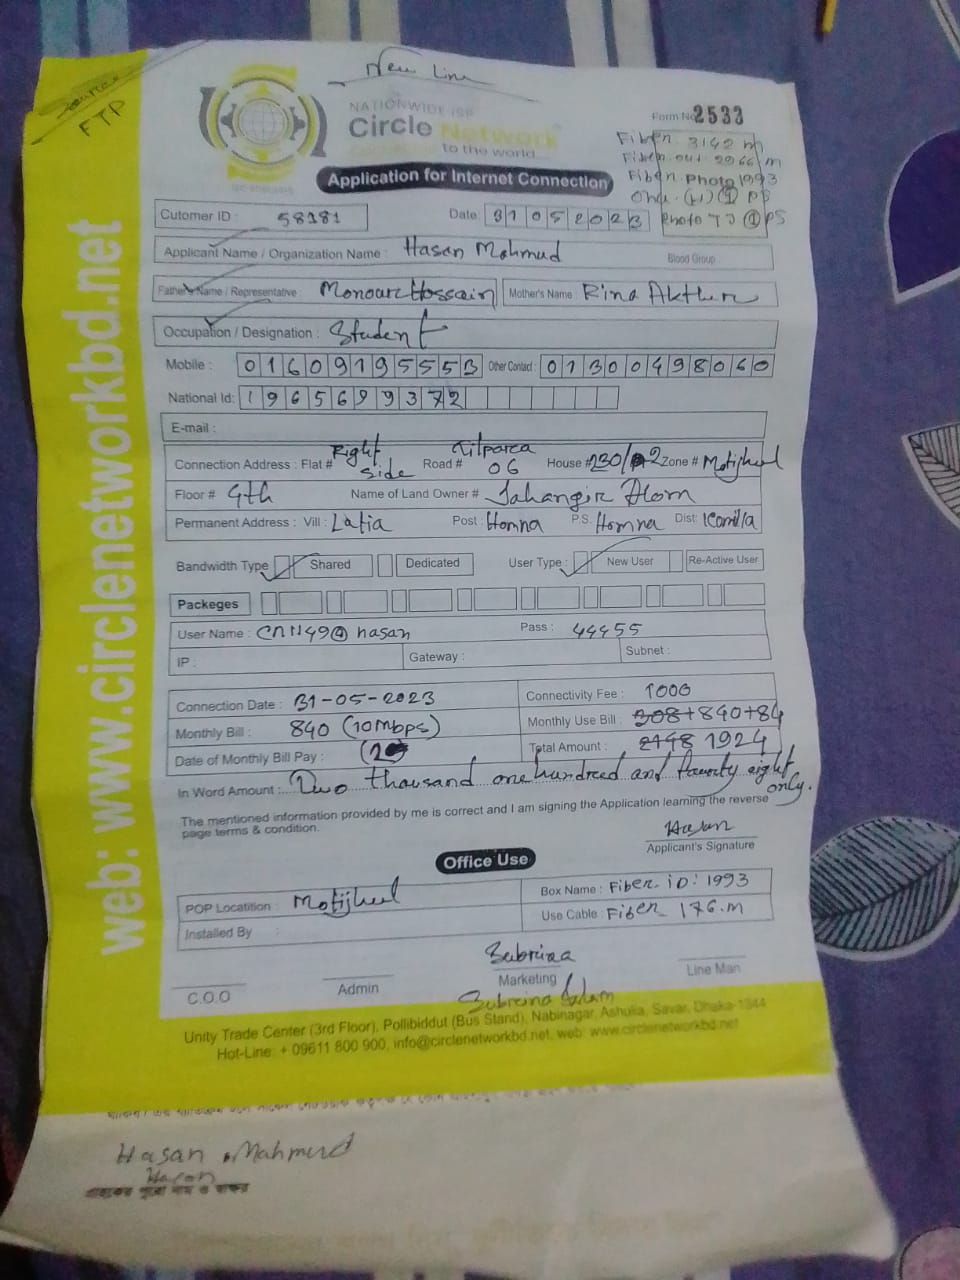 New Line
FTP
NATIONWIDE ISP
Circle Network
to the world...
Form No 2533
Fiber. 3142 m
Fiber. out. 2966 m
Fiber. Photo 1993
Application for Internet Connection
Cutomer ID : 58181
Date : 31052023
Applicant Name / Organization Name : Hasan Mahmud
Blood Group
Father's Name / Representative : Monoar Hossain
Mother's Name : Rina Akther
Occupation / Designation : Student
Mobile : 01609195553 Other Contact : 01300498060
National Id: 1965699372
E-mail :
Connection Address : Flat # Right side Road # 06 House # 130/ 2 Zone # Motijheel
Floor # 4th Name of Land Owner # Jahangir Alom
Permanent Address : Vill : Latia Post : Homna P.S. Homna Dist: Komilla
Bandwidth Type Shared Dedicated User Type : New User Re-Active User
Packeges
User Name : CNN49@hasan Pass : 44455
IP : Gateway : Subnet :
Connection Date : 31-05-2023 Connectivity Fee : 1000
Monthly Bill : 840 (10mbps) Monthly Use Bill : 308+840+84
Date of Monthly Bill Pay : Total Amount : 1924
In Word Amount :.. Two thousand one hundred and twenty eight only.
The mentioned information provided by me is correct and I am signing the Application learning the reverse
page terms & condition.
Hasan
Applicant's Signature
Office Use
POP Locatition : Motijheel Box Name : Fiber. iD: 1993
Use Cable : Fiber 176.m
Installed By :
Sabrina
C.O.O Admin Marketing Line Man
Sabreina Salam
Unity Trade Center (3rd Floor), Pollibiddut (Bus Stand), Nabinagar, Ashulia, Savar, Dhaka-1344
Hot-Line: + 09611 800 900, info@circlenetworkbd.net, web: www.circlenetworkbd.net
web: www.circlenetworkbd.net
Hasan Mahmud
Hasan
গ্রাহকের পুরো নাম ও স্বাক্ষর